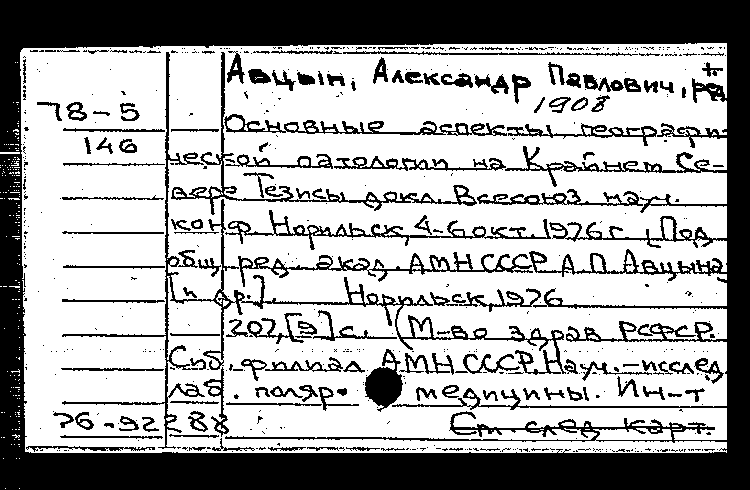 Авцын, Александр Павлович, ред
1908
78-5
Основные аспекты географи-
146
ческой патологии на Крайнем Се-
вере Тезисы докл. Всесоюз. науч.
конф. Норильск, 4-6 окт. 1976 г. [Под
общ. ред. акад. АМН СССР А.П. Авцына
[и др.]. Норильск, 1976
207, [9] с. (М-во здрав РСФСР.
Сиб. филиал АМН СССР. Науч.-исслед
лаб. поляр. медицины. Ин-т
76-92288
См. след карт.